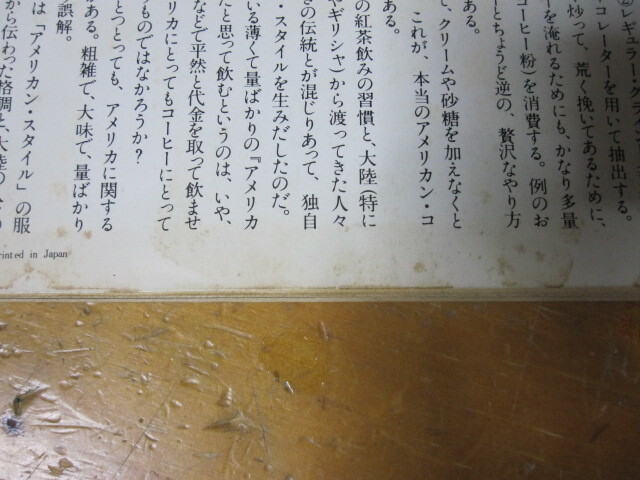 ②レギュラーグ
コレーターを用いて抽出する。
炒って、荒く挽いてあるために、
ーを淹れるためにも、かなり多量
コーヒー粉)を消費する。例のお
ーとちょうど逆の、贅沢なやり方
て、クリームや砂糖を加えなくと
ある。
これが、本当のアメリカン・コ
ある。
の紅茶飲みの習慣と、大陸(特に
やギリシャ)から渡ってきた人々
きの伝統とが混じりあって、独自
・スタイルを生みだしたのだ。
いる薄くて量ばかりの『アメリカ
だと思って飲むというのは、いや、
などで平然と代金を取って飲ませ
メリカにとってもコーヒーにとって
ものではなかろうか?
とつとっても、アメリカに関する
がある。粗雑で、大味で、量ばかり
誤解。
は「アメリカン・スタイル」の服
から伝わった格調と、大陸の
rinted in Japan